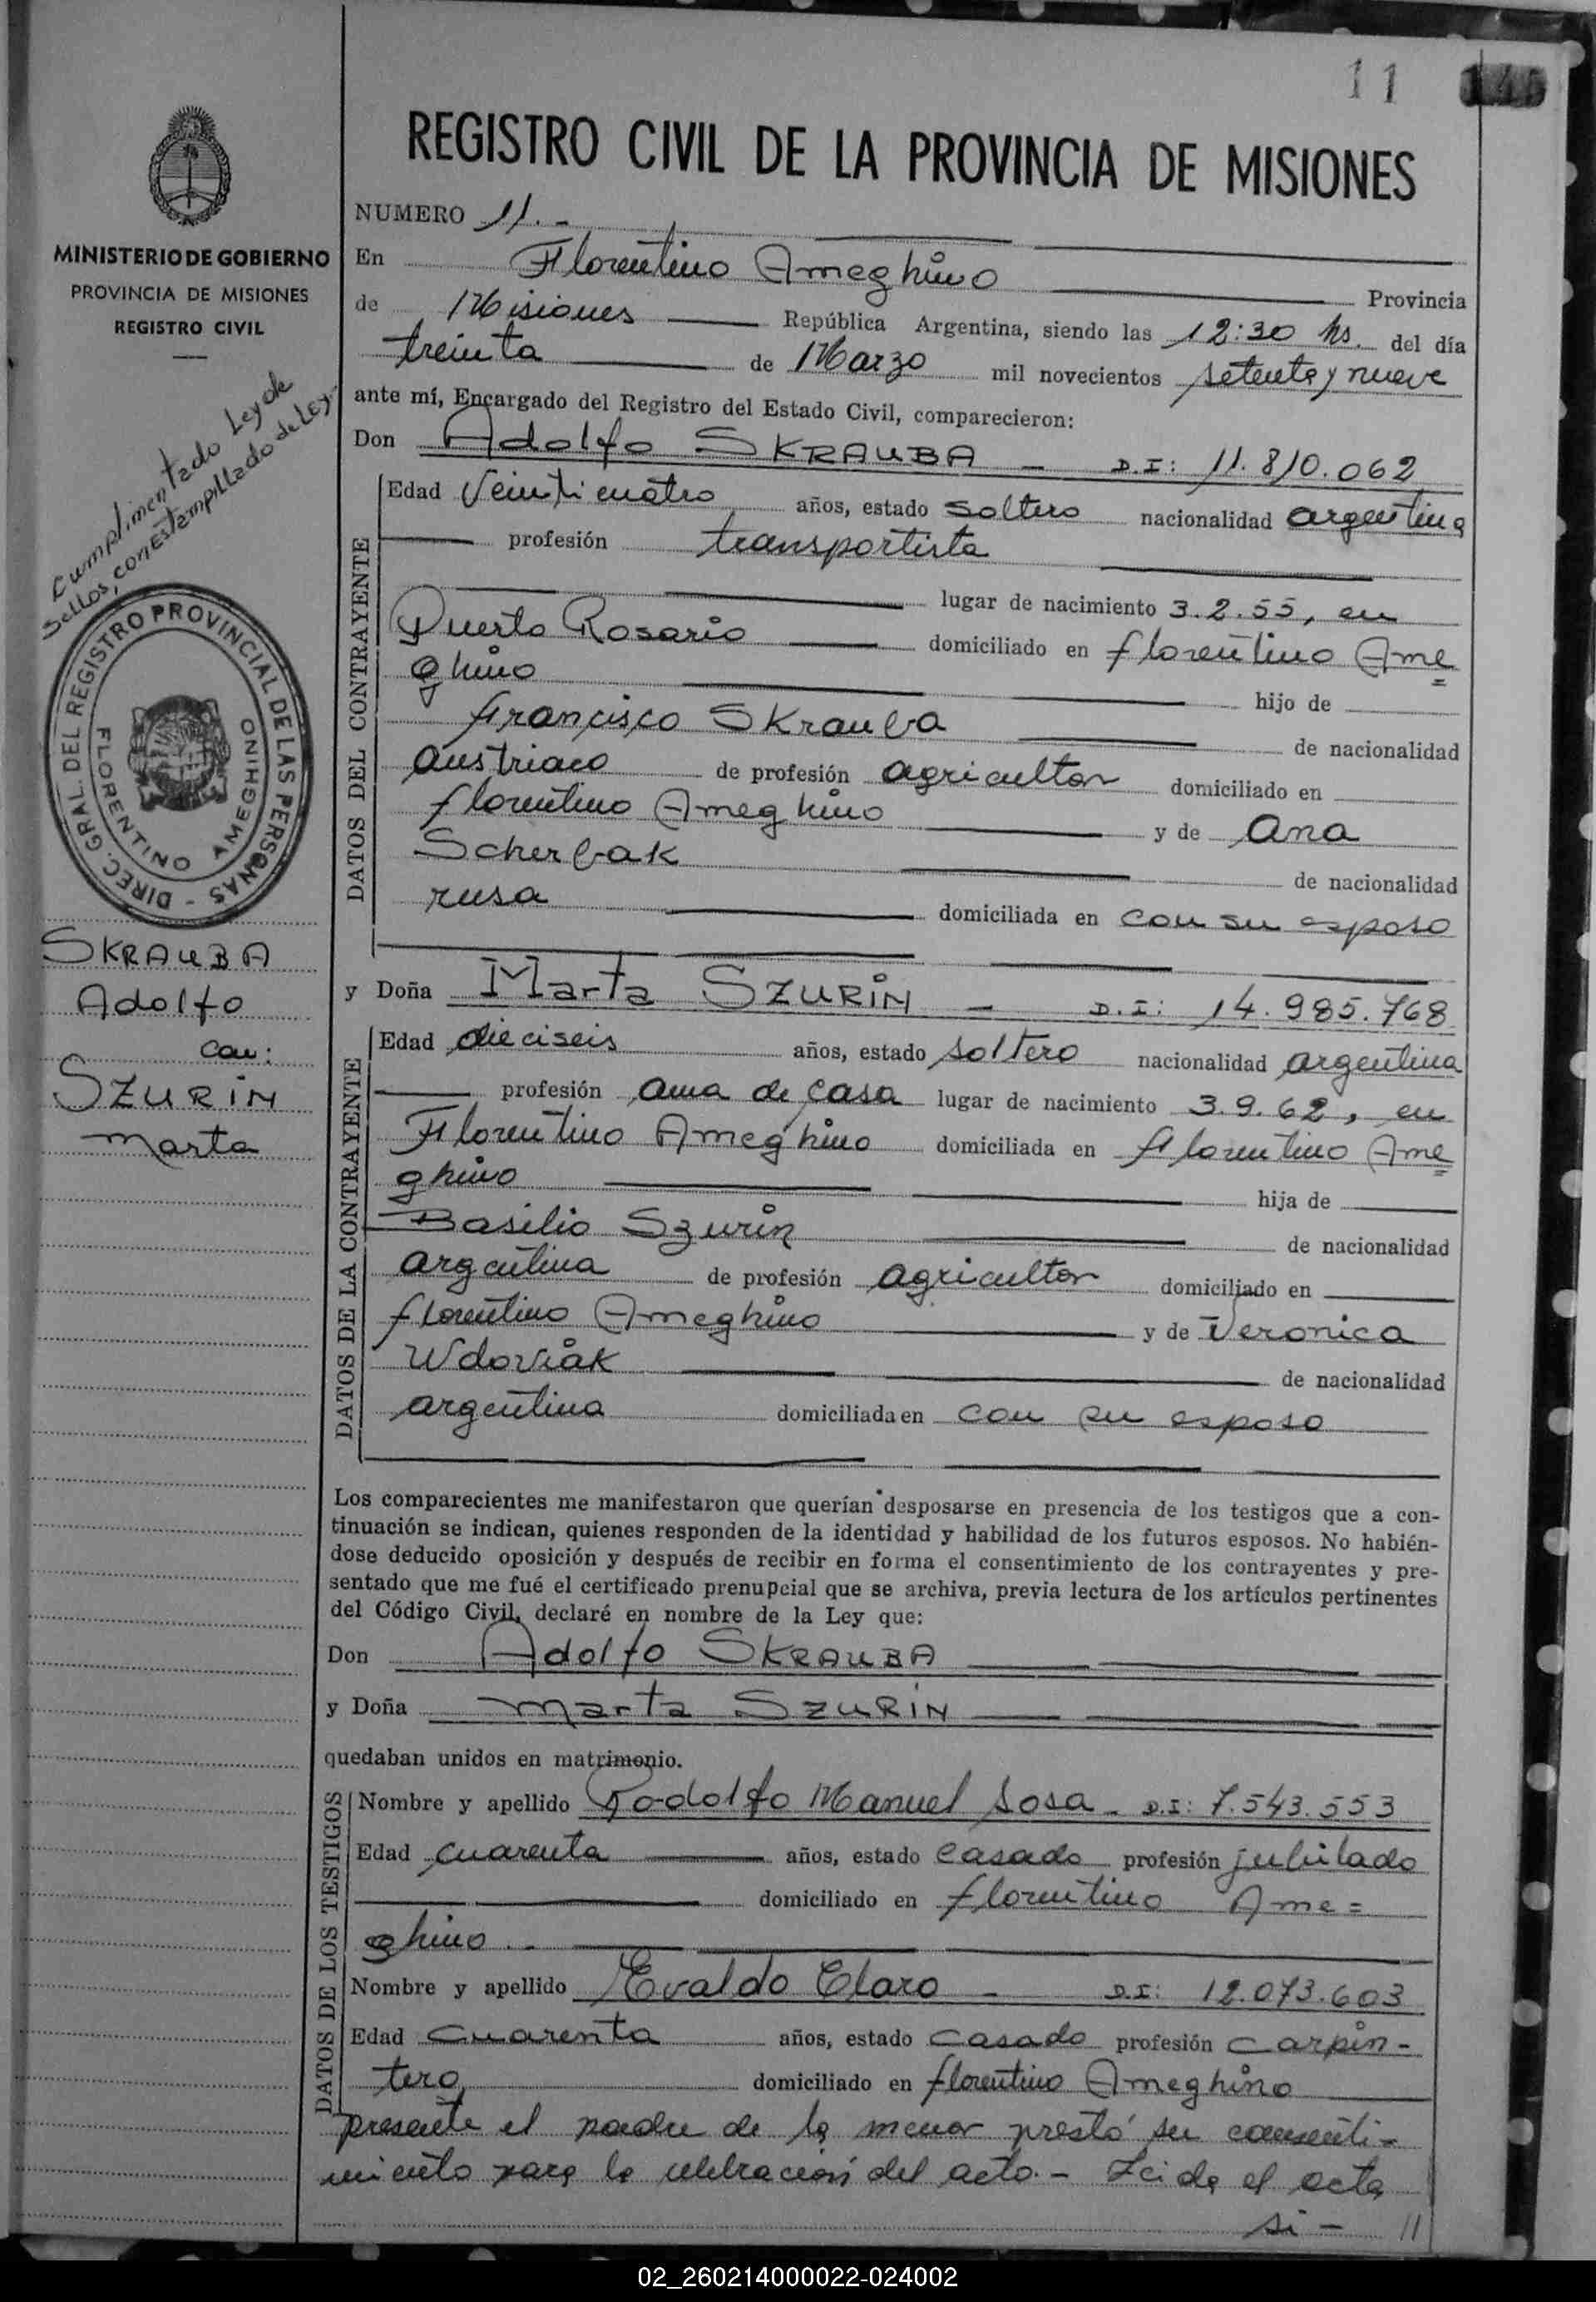 11
REGISTRO CIVIL DE LA PROVINCIA DE MISIONES
MINISTERIO DE GOBIERNO
PROVINCIA DE MISIONES
REGISTRO CIVIL
Cumplimentado Ley de
Sellos, con Estampillado de Ley-
DIREC. GRAL. DEL REGISTRO PROVINCIAL DE LAS PERSONAS -
FLORENTINO AMEGHINO
SKRAUBA
Adolfo
con:
SZURIN
Marta
NUMERO 11.-
En Florentino Ameghino Provincia
de Misiones República Argentina, siendo las 12:30 hs. del día
treinta de Marzo mil novecientos setenta y nueve
ante mí, Encargado del Registro del Estado Civil, comparecieron:
Don Adolfo SKRAUBA - D.I: 11.810.062
DATOS DEL CONTRAYENTE
Edad veinticuatro años, estado soltero nacionalidad argentina
profesión transportista
lugar de nacimiento 3.2.55, en
Puerto Rosario domiciliado en florentino Ame=
ghino hijo de
Francisco Skrauba de nacionalidad
austriaco de profesión agricultor domiciliado en
florentino Ameghino y de Ana
Scherbak de nacionalidad
rusa domiciliada en con su esposo
y Doña Marta SZURIN - D.I: 14.985.768
DATOS DE LA CONTRAYENTE
Edad dieciseis años, estado soltero nacionalidad argentina
profesión ama de casa lugar de nacimiento 3.9.62, en
Florentino Ameghino domiciliada en Florentino Ame=
ghino hija de
Basilio Szurin de nacionalidad
argentina de profesión agricultor domiciliado en
florentino Ameghino y de Veronica
Wdoviak de nacionalidad
argentina domiciliada en con su esposo
Los comparecientes me manifestaron que querían desposarse en presencia de los testigos que a con-
tinuación se indican, quienes responden de la identidad y habilidad de los futuros esposos. No habién-
dose deducido oposición y después de recibir en forma el consentimiento de los contrayentes y pre-
sentado que me fué el certificado prenupcial que se archiva, previa lectura de los artículos pertinentes
del Código Civil, declaré en nombre de la Ley que:
Don Adolfo SKRAUBA
y Doña Marta SZURIN
quedaban unidos en matrimonio.
DATOS DE LOS TESTIGOS
Nombre y apellido Rodolfo Manuel Sosa - D.I: 7.543.553
Edad cuarenta años, estado casado profesión jubilado
domiciliado en florentino Ame=
ghino.-
Nombre y apellido Evaldo Claro - D.I: 12.073.603
Edad cuarenta años, estado casado profesión carpin-
tero domiciliado en florentino Ameghino
presente el padre de la menor prestó su consenti-
miento para la celebración del acto.- Leida el acta
si - //
02_260214000022-024002